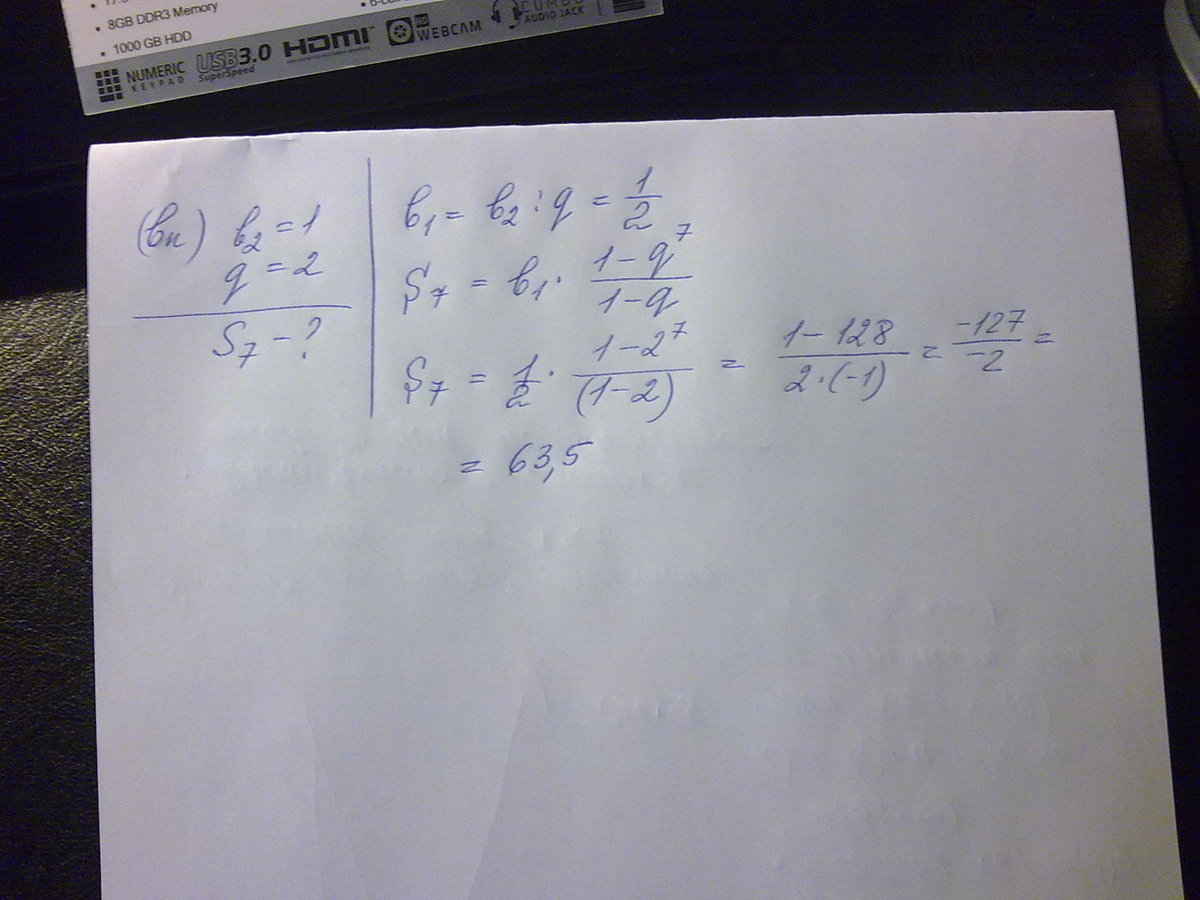 • 8GB DDR3 Memory
• 1000 GB HDD
NUMERIC KEYPAD USB3.0 SuperSpeed HDMI WEBCAM COMBO AUDIO JACK
(bn) b₂ = 1
q = 2
S₇ - ?
b₁ = b₂ : q = 1/2
S₇ = b₁ · (1-q⁷)/(1-q)
S₇ = 1/2 · (1-2⁷)/(1-2) = (1-128)/(2·(-1)) = -127/-2 =
= 63,5